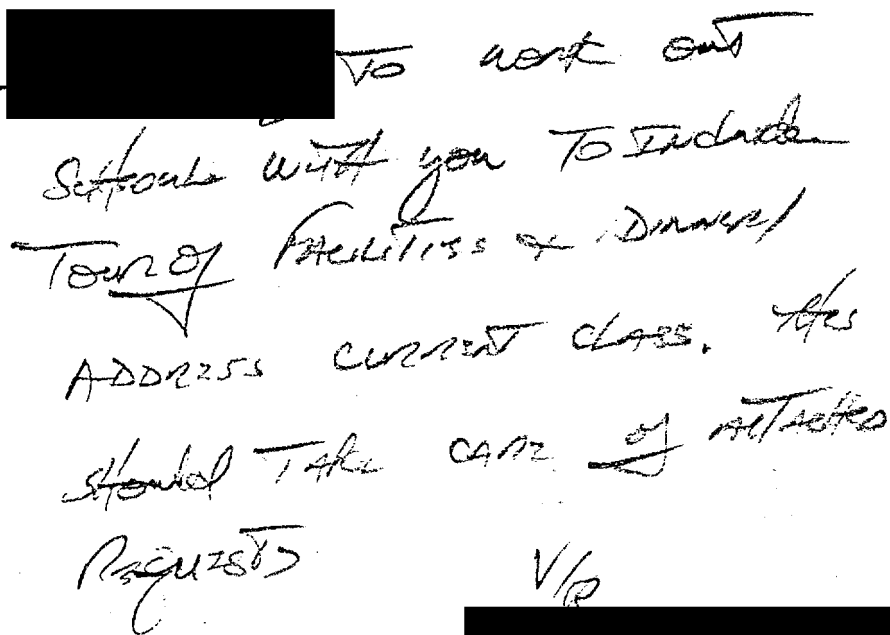 to work out
Schedule with you to Include
Tour of Facilities & Dinner/
Address current class. This
should Take care of attached
Requests
V/R